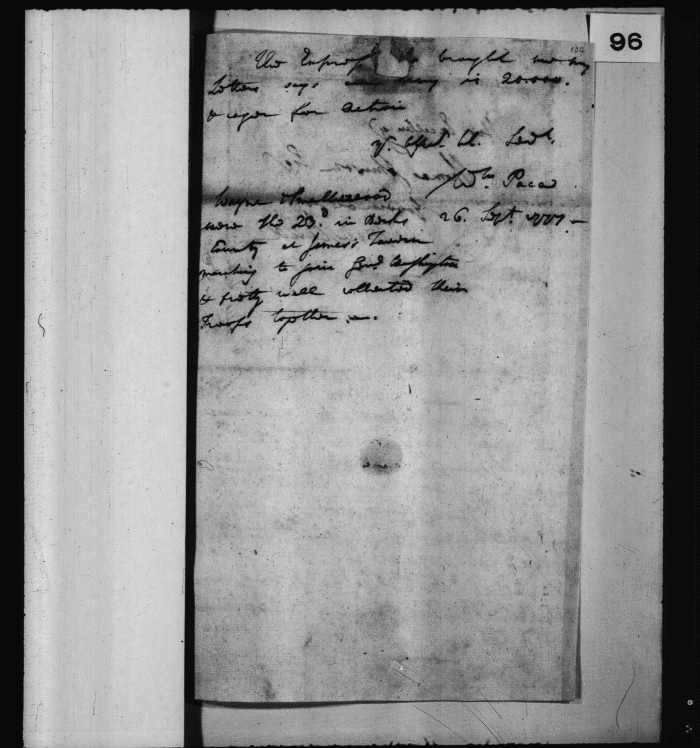 96
104
The Express who brought me my
Letters says our Army is 20.000.
& eager for Action
yr. Obt. hl. Sevt.
Wm. Paca
26. Sept. 1777 –
Wayne & Smallwood
were the 23d. in Berks
County at James's Tavern
marching to join Genl Washington
& pretty well collected their
Troops together —.